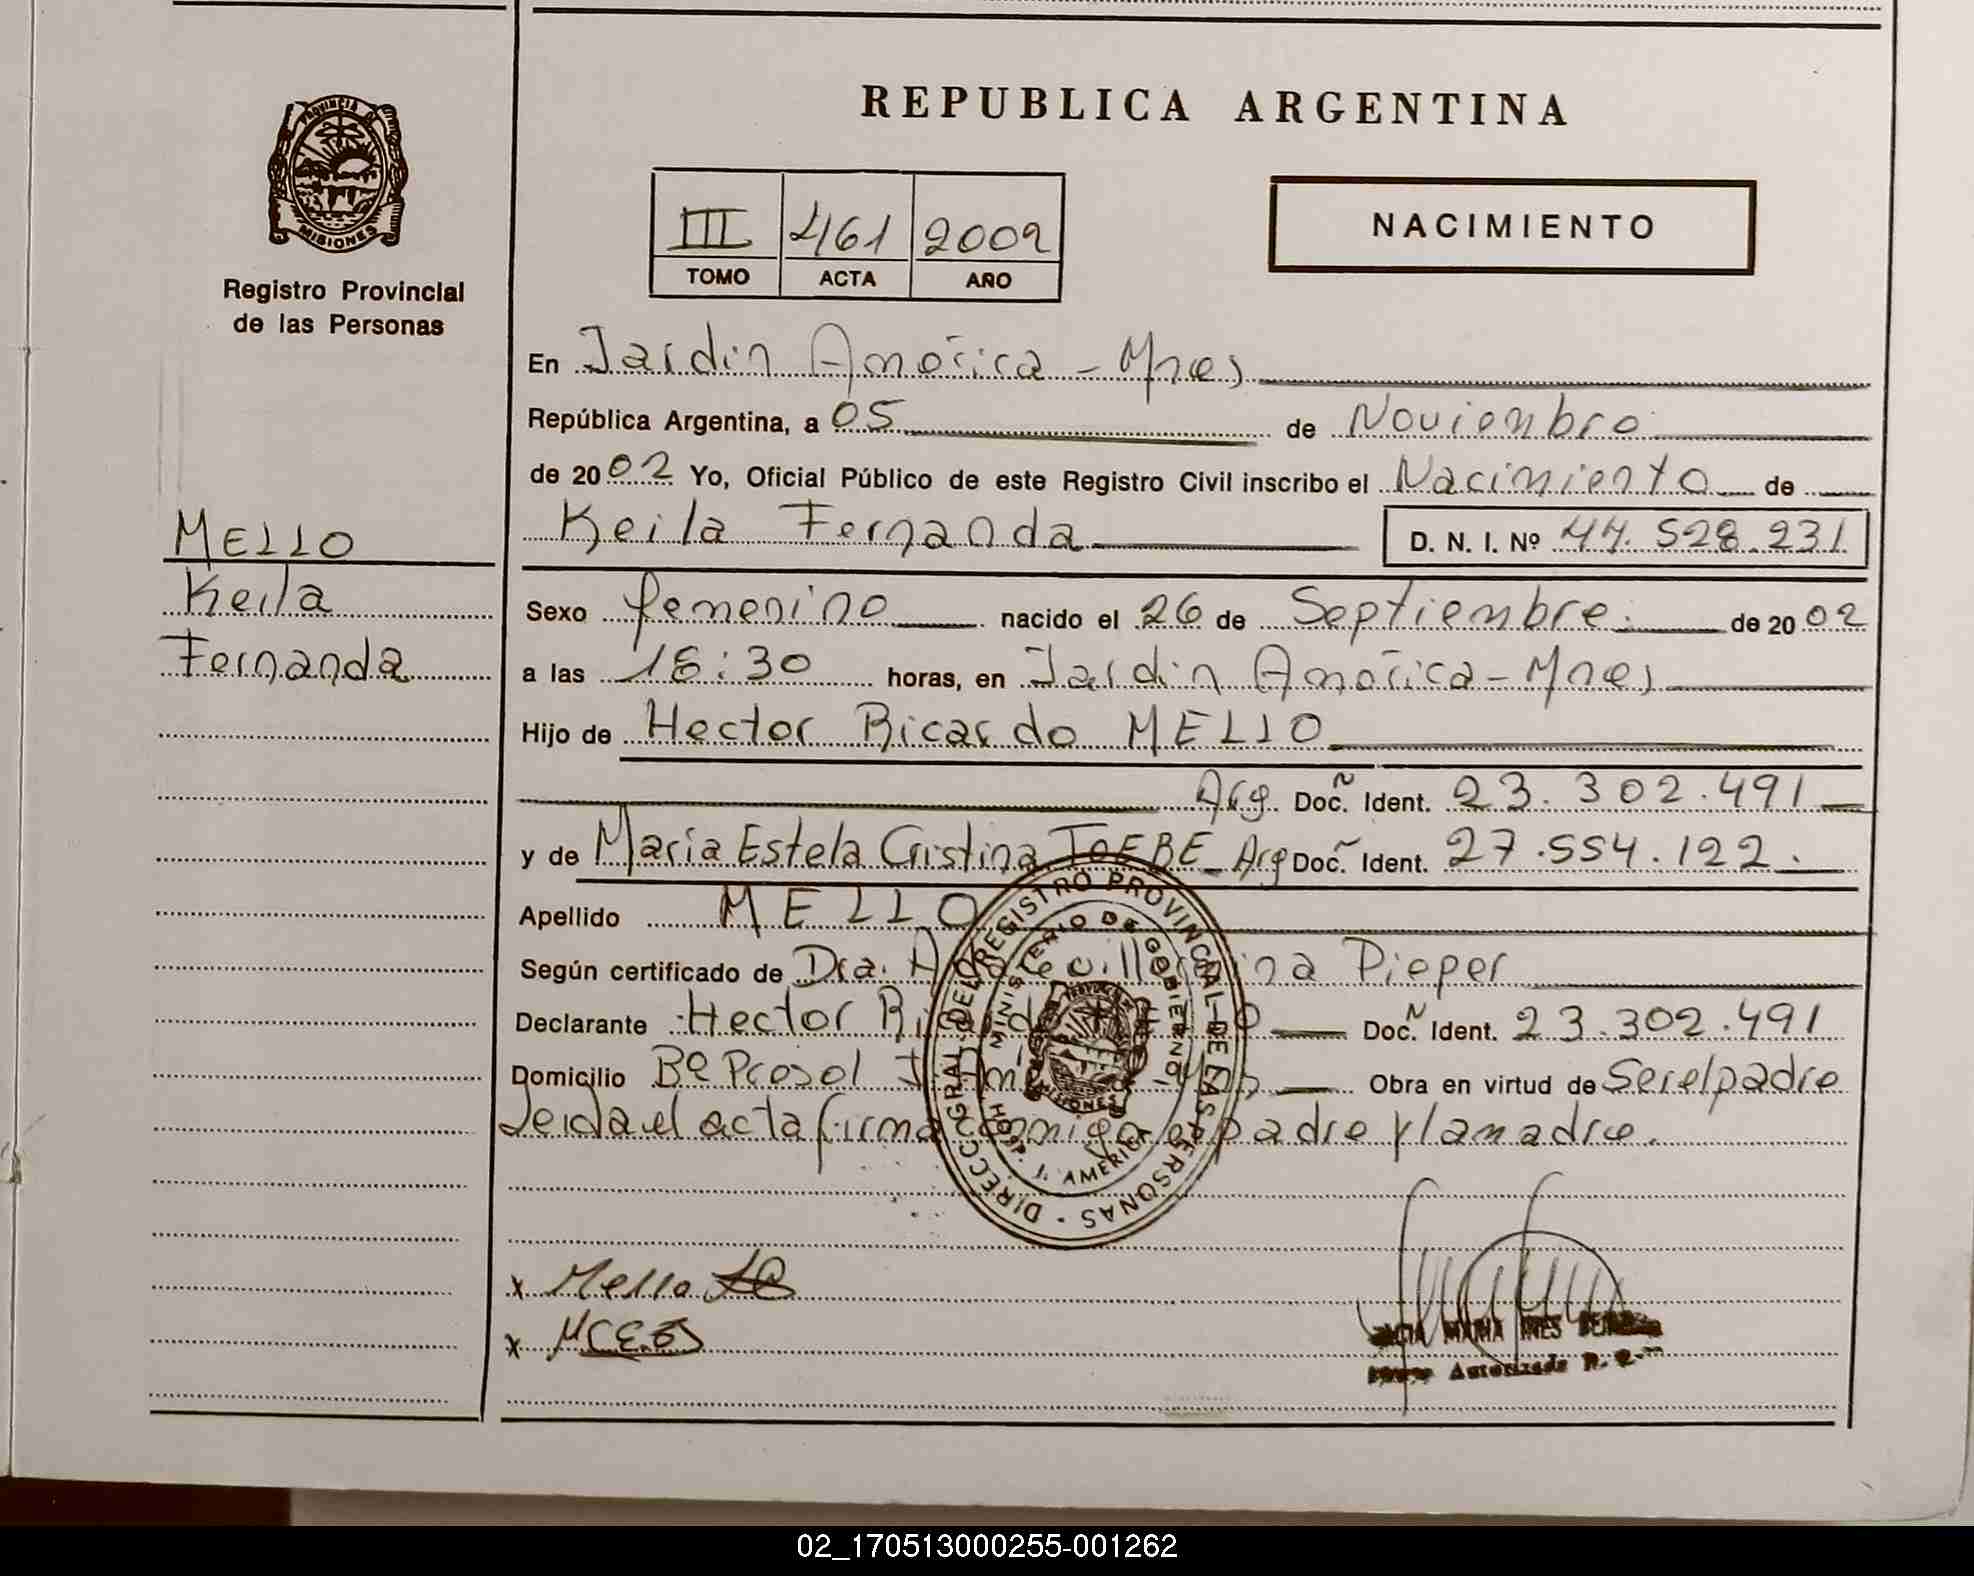 PROVINCIA DE
MISIONES
Registro Provincial
de las Personas
MELLO
Keila
Fernanda
REPUBLICA ARGENTINA
III 461 2002
TOMO ACTA AÑO
NACIMIENTO
En Jardin América - Mnes
República Argentina, a 05 de Noviembre
de 2002 Yo, Oficial Público de este Registro Civil inscribo el Nacimiento de
Keila Fernanda D. N. I. Nº 44.528.231
Sexo femenino nacido el 26 de Septiembre de 2002
a las 18:30 horas, en Jardin América - Mnes
Hijo de Hector Ricardo MELLO
Arg. Doc. Ident. 23.302.491
y de Maria Estela Cristina ToEBE Arg Doc. Ident. 27.554.122.
Apellido MELLO
Según certificado de Dra. Pieper
Declarante Hector Doc. Ident. 23.302.491
Domicilio Bº Prosol Obra en virtud de Ser el padre
Leida el acta firma conmigo el padre y la madre.
DIRECC. GRAL. DEL REGISTRO PROVINCIAL DE LAS PERSONAS
MINISTERIO DE GOBIERNO
HOSP. J. AMERICA
PROVINCIA DE
MISIONES
x Mello
x
MARIA INES
Autorizada
02_170513000255-001262